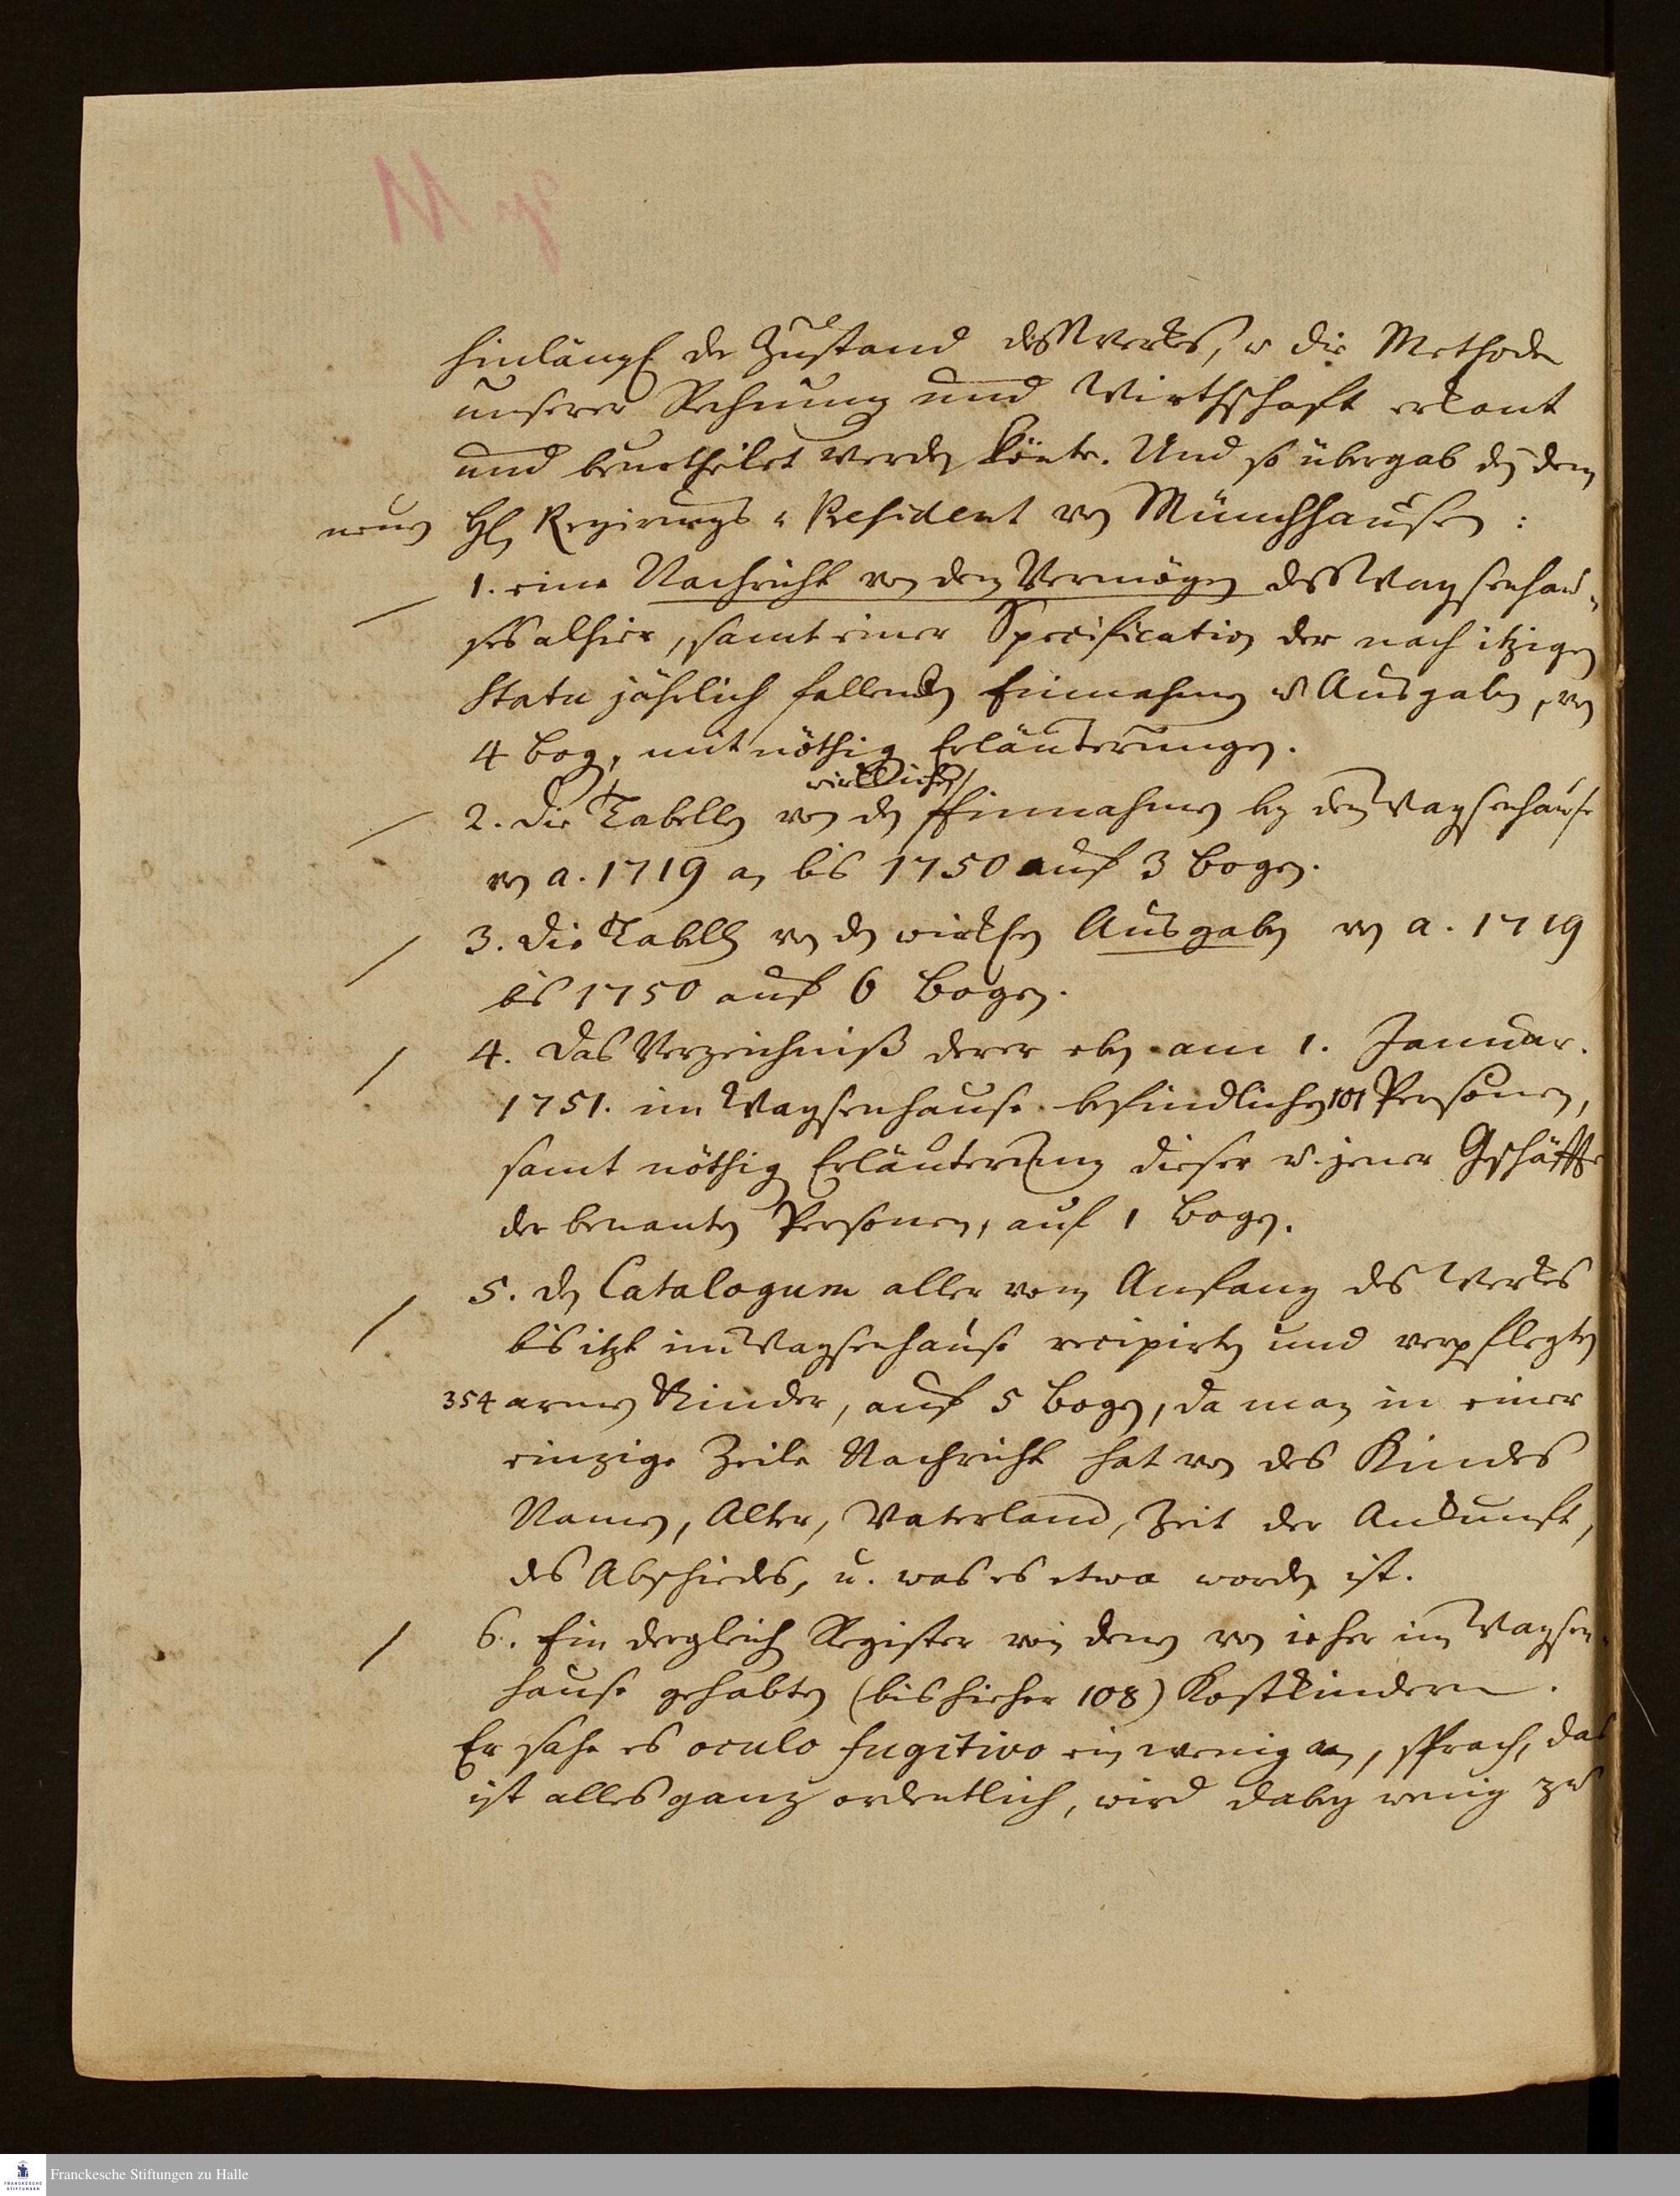 hinlängl. der Zustand des Werks, u. die Methode
unserer Rechnung und Wirthschaft erkant
und beurtheilet werden könte. Und so übergab ich dem
neuen Hn Regierungs-Præsident von Münchhausen:
1. eine Nachricht von dem Vermögen des Waysenhau-
ses alhier, samt einer Specification der nach itzigen
Statu jährlich fallenden Einnahmen u. Ausgaben, von
4 Bog, mit nöthig Erläuterungen.
2. Die Tabellen von den wirklichen Einnahmen bey dem Waysenhause
von a. 1719 an bis 1750 auf 3 Bogen.
3. Die Tabelle von den wirklichen Ausgaben von a. 1719
bis 1750 auf 6 Bogen.
4. Das Verzeichniß derer eben am 1. Januar.
1751. im Waysenhause befindlichen 101 Personen,
samt nöthig Erläuterung dieser u. jener Geschäffte
der benanten Personen, auf 1 Bogen.
5. den Catalogum aller vom Anfang des Werks
bis itzt im Waysenhause recipirten und verpflegten
354 armen Kinder, auf 5 Bogen, da man in einer
einzige Zeile Nachricht hat von des Kindes
Namen, Alter, Vaterland, Zeit der Ankunft,
des Abschieds, u. was es etwa worden ist.
6. Ein dergleich Register von denen von ieher im Waysen-
hause gehabten (bis hieher 108) Kostkindern.
Er sahe es oculo fugitivo ein wenig an, sprach, das
ist alles ganz ordentlich, wird dabey wenig zu
Franckesche Stiftungen zu Halle